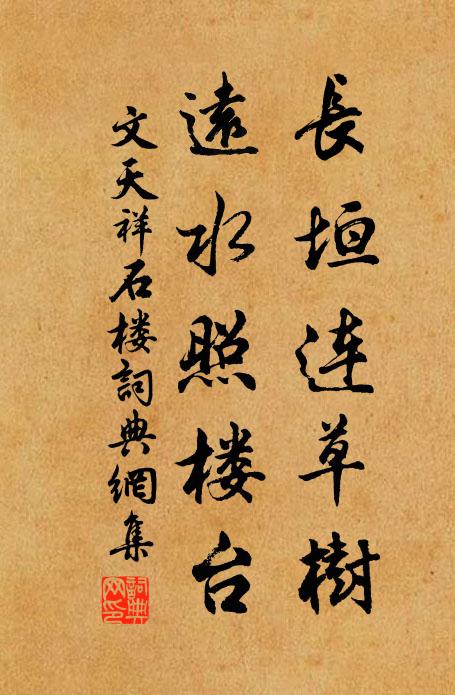 長垣連草樹
遠水照楼台
文天祥石楼詞典網集
詞典
网印